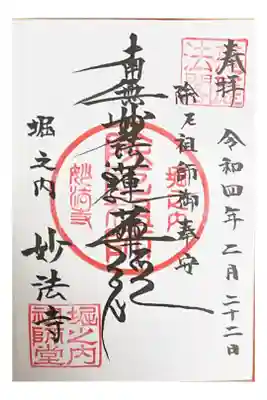 奉拝
令和四年二月二十二日
除厄祖師御奉安
南無妙法蓮華経
堀之内
妙法寺
堀之内
妙法寺
堀之内
祖師堂